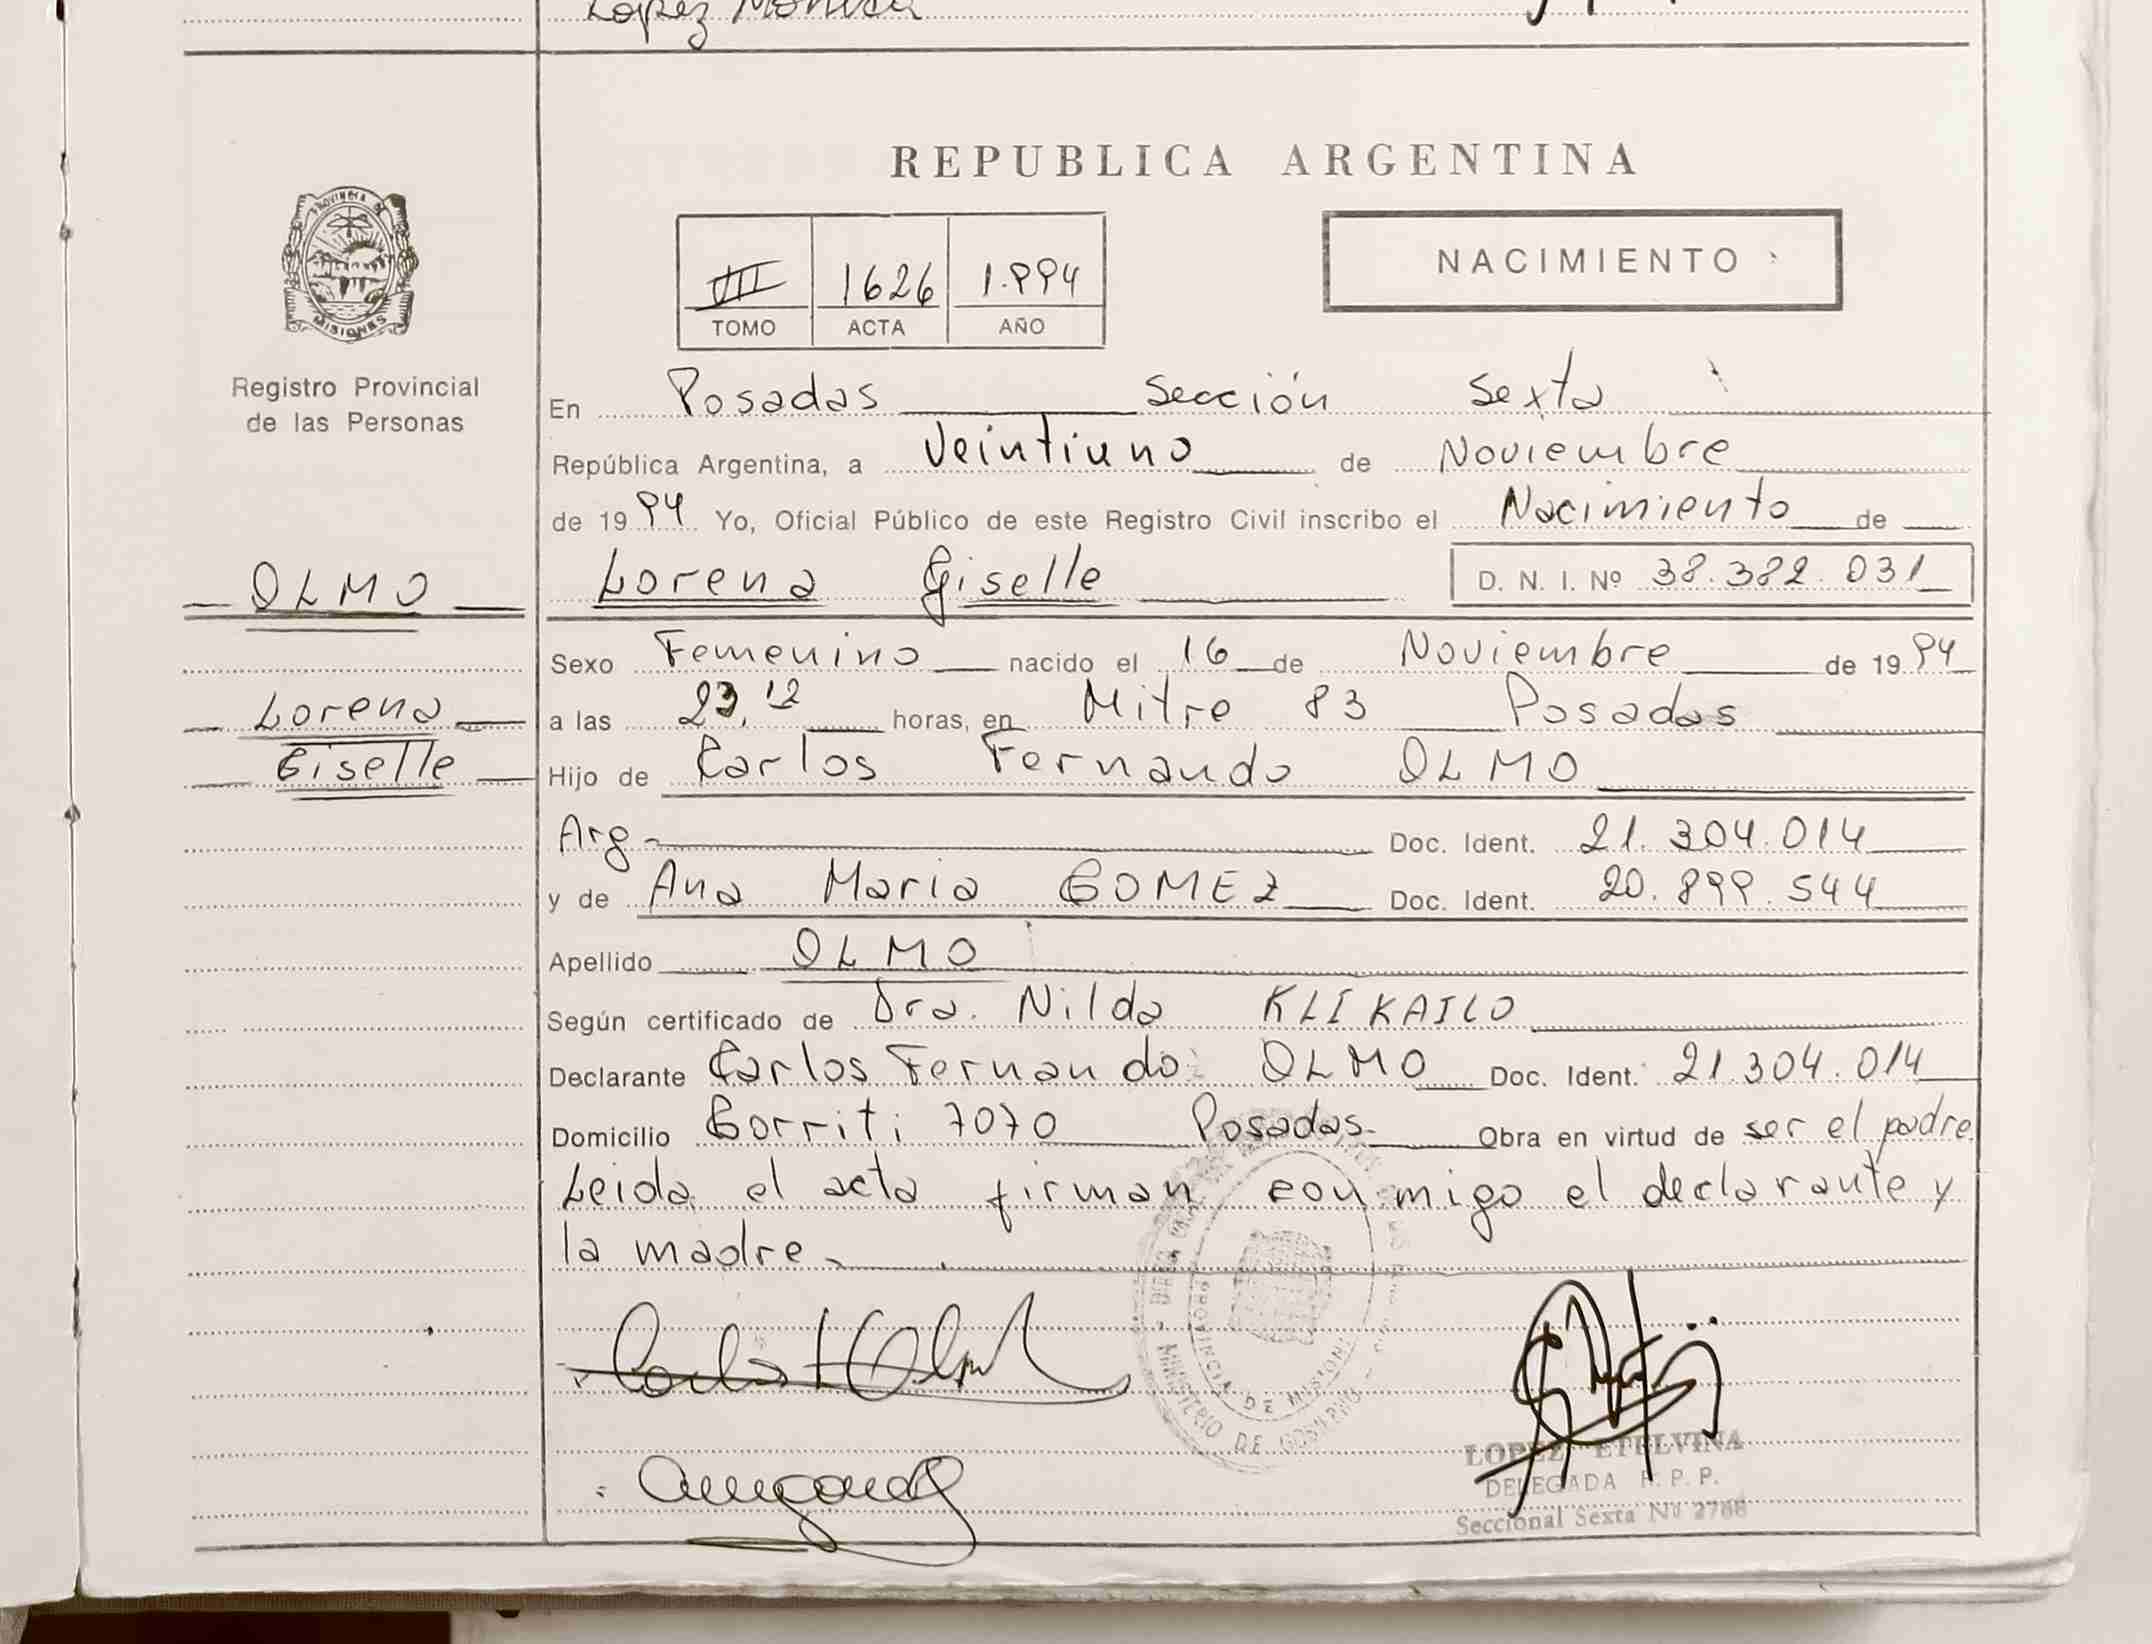 Lopez Monica
REPUBLICA ARGENTINA
PROVINCIA DE
MISIONES
Registro Provincial
de las Personas
III 1626 1.994
TOMO ACTA AÑO
NACIMIENTO
En Posadas Sección Sexta
República Argentina, a Veintiuno de Noviembre
de 1994 Yo, Oficial Público de este Registro Civil inscribo el Nacimiento de
OLMO
Lorena Giselle D. N. I. Nº 38.382.031
Sexo Femenino nacido el 16 de Noviembre de 1994
Lorena
a las 23,12 horas, en Mitre 83 Posadas
Giselle
Hijo de Carlos Fernando OLMO
Arg- Doc. Ident. 21.304.014
y de Ana Maria GOMEZ Doc. Ident. 20.899.544
Apellido OLMO
Según certificado de Dra. Nilda KLIKAILO
Declarante Carlos Fernando OLMO Doc. Ident. 21.304.014
Domicilio Gorriti 7070 Posadas- Obra en virtud de ser el padre
Leida el acta firman conmigo el declarante y
la madre-
PROVINCIA DE MISIONES
MINISTERIO DE GOBIERNO
LOPEZ ETELVINA
DELEGADA R. P. P.
Seccional Sexta Nº 2788